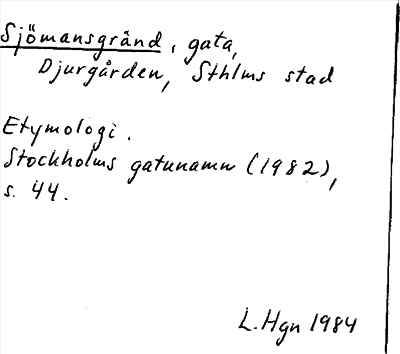 Sjömansgränd, gata,
Djurgården, Sthlms stad
Etymologi.
Stockholms gatunamn (1982),
s. 44.
L. Hgn 1984